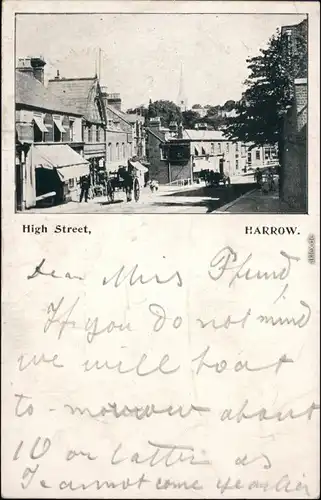 High Street,
HARROW.
Dear Miss Pfund
If you do not mind
we will boat
to-morrow about
10 or latter as
I cannot come yearlier